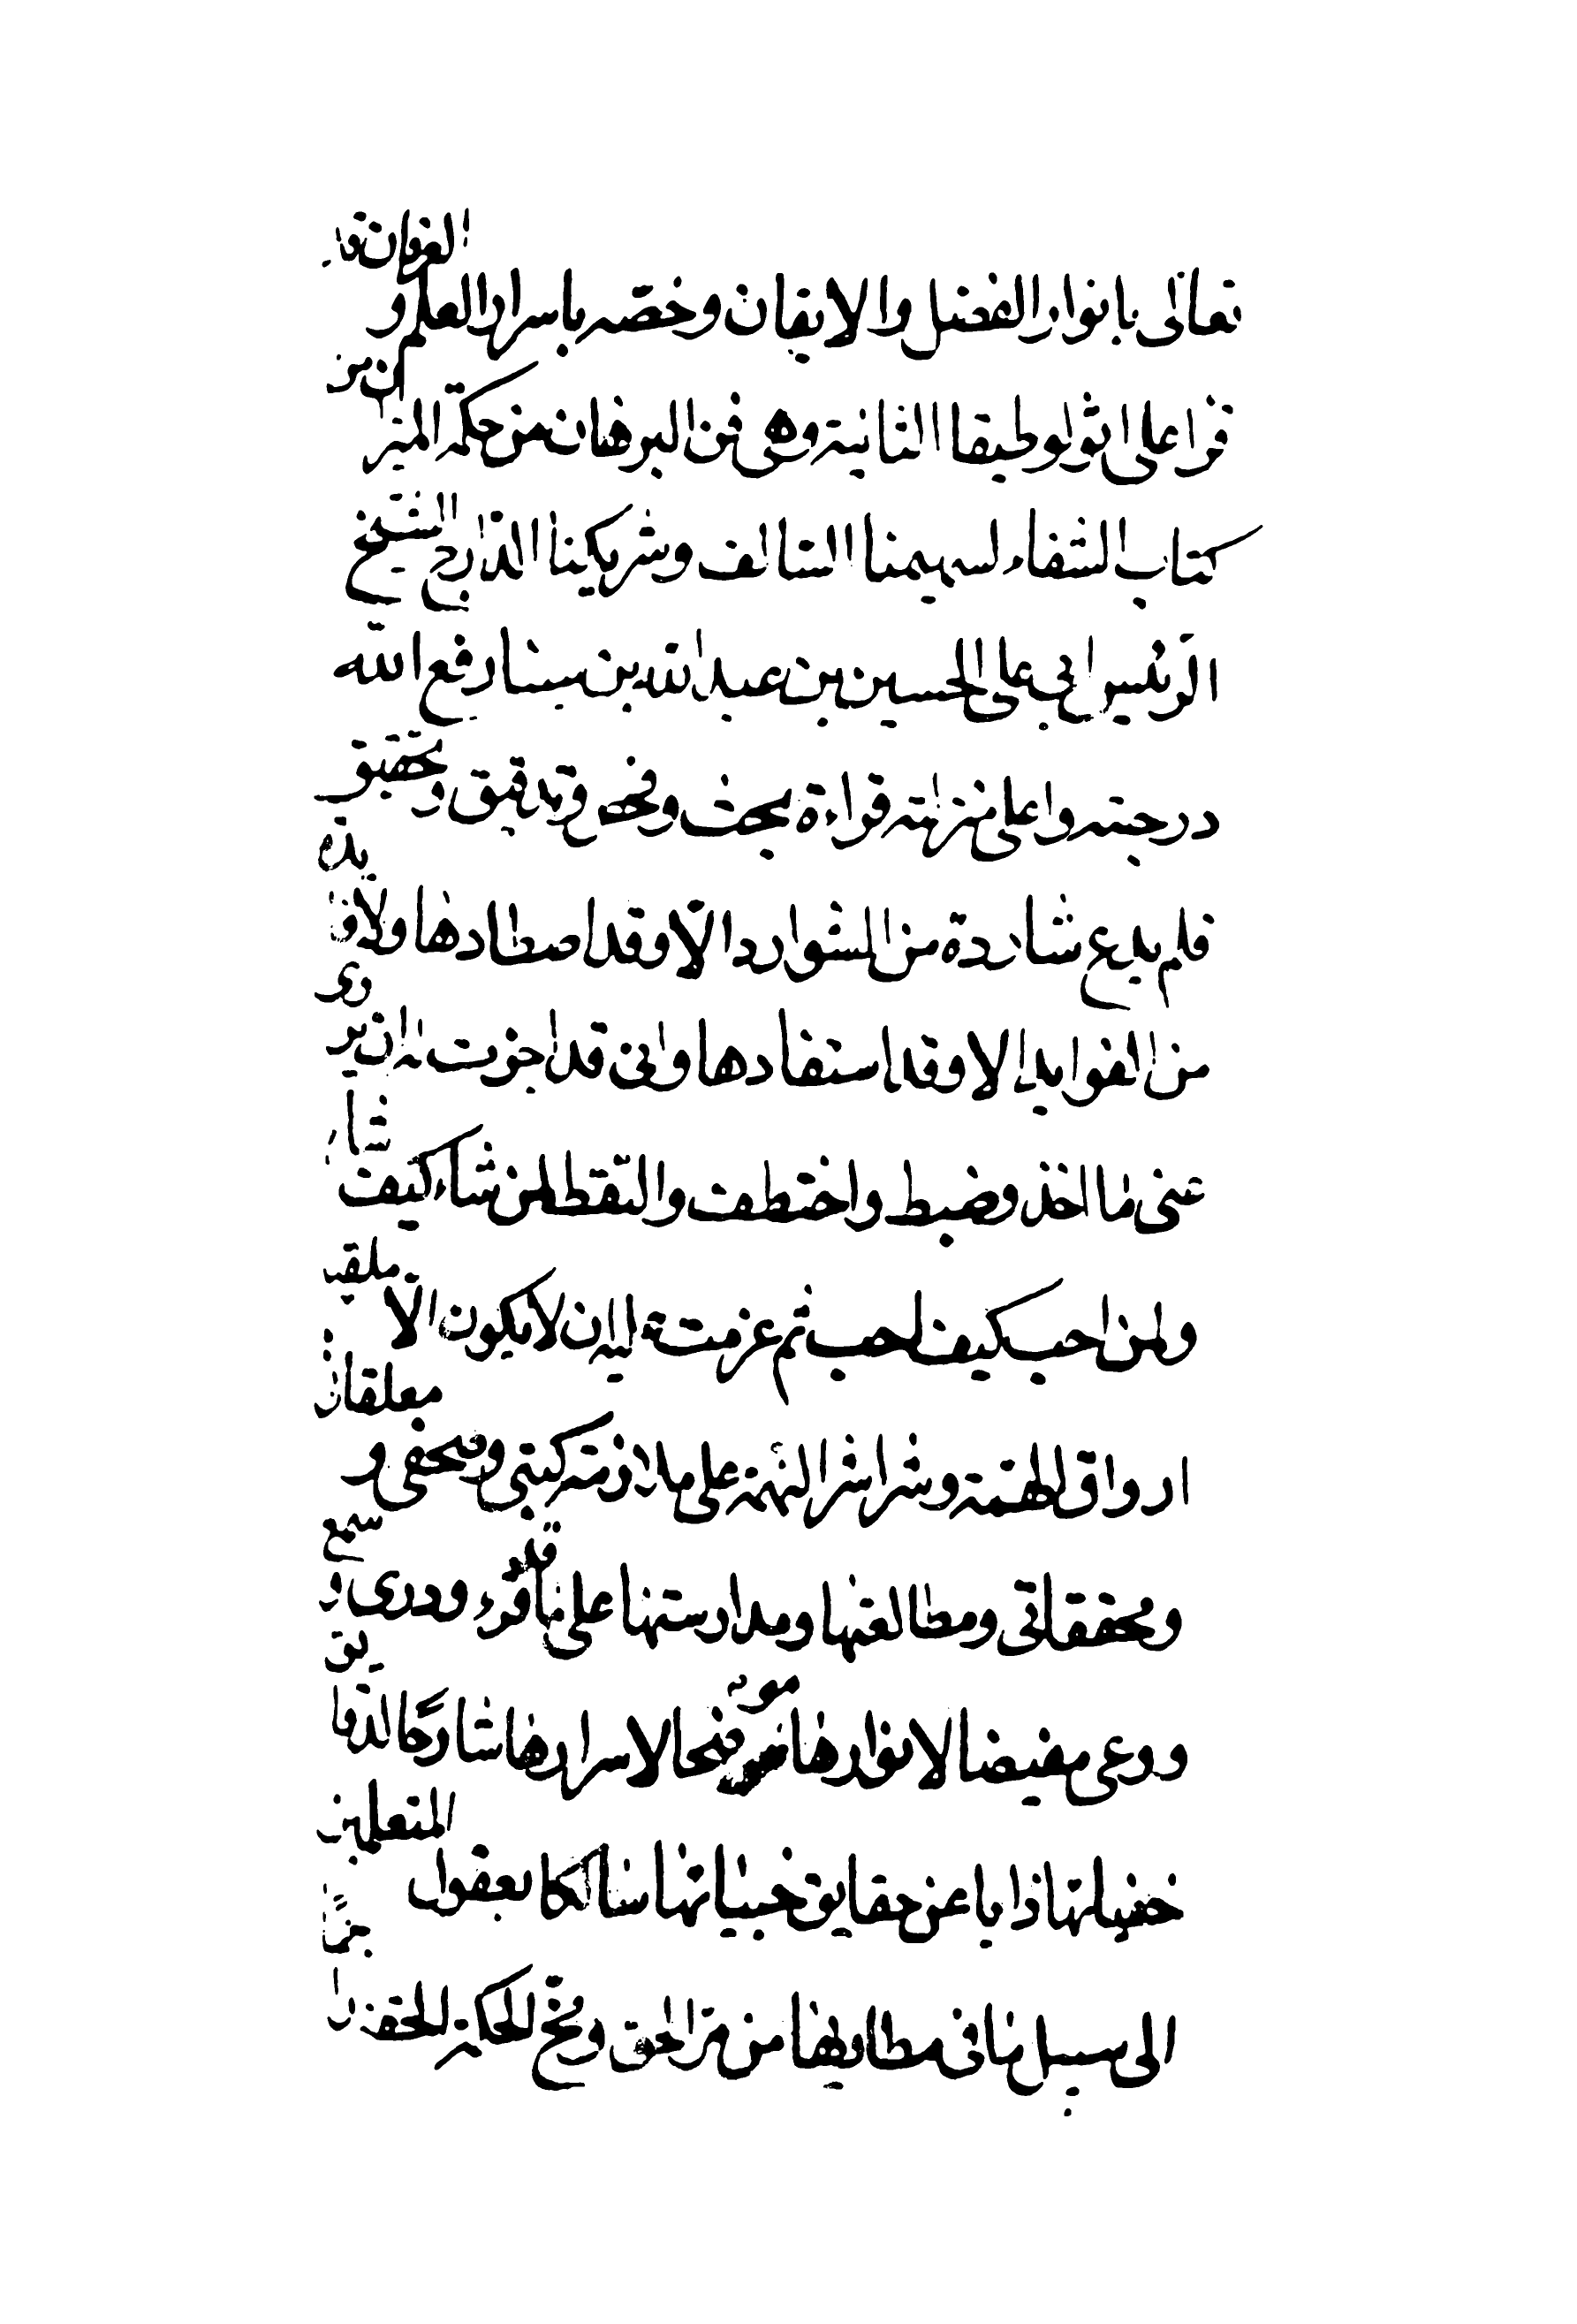 تعالى بانوار الفضل والايقان وخصّه باسرار العلم و العرفان قد
قرأ على اثولوطيقا الثانية وهى فن البرهان من حكمة الميزان من
كتاب الشفاء لسهيمنا السالف وشريكنا الدّارج الشيخ
الرّئيس ابى على الحسين بن عبد الله بن سينا رفع الله
درجته واعلى منزلته قراءة بحث وفحص وتدقيق وتحقيق
فلم يدع شاردة من الشوارد الّا وقد اصطادها ولا فايدة
من الفوايد الا وقد استفادها وانى قد اجزت له ان يروى
عنى ما اخذ وضبط واختطف والتقط لمن شاء كيف شاء
ولمن احب كيف احب ثم عزمت عليه ان لا يكون الّا ملقيا
ارواق الهمّة وشراشر النهمة على ملازمة كتبى وصحفى و معلقاتى
ومحققاتى ومطالعتها ومدارستها على ما قد قرء ودرى و سمع
ووعى مفيضا لانوارها موضحا لاسرارها شارحا لدقايق
خفياتها ذابا عن حقايق خبيّاتها سالكا بعقول المتعلمين
الى سبيل ما فى مطاويها من مرّ الحق ومخّ الحكمة الحقة